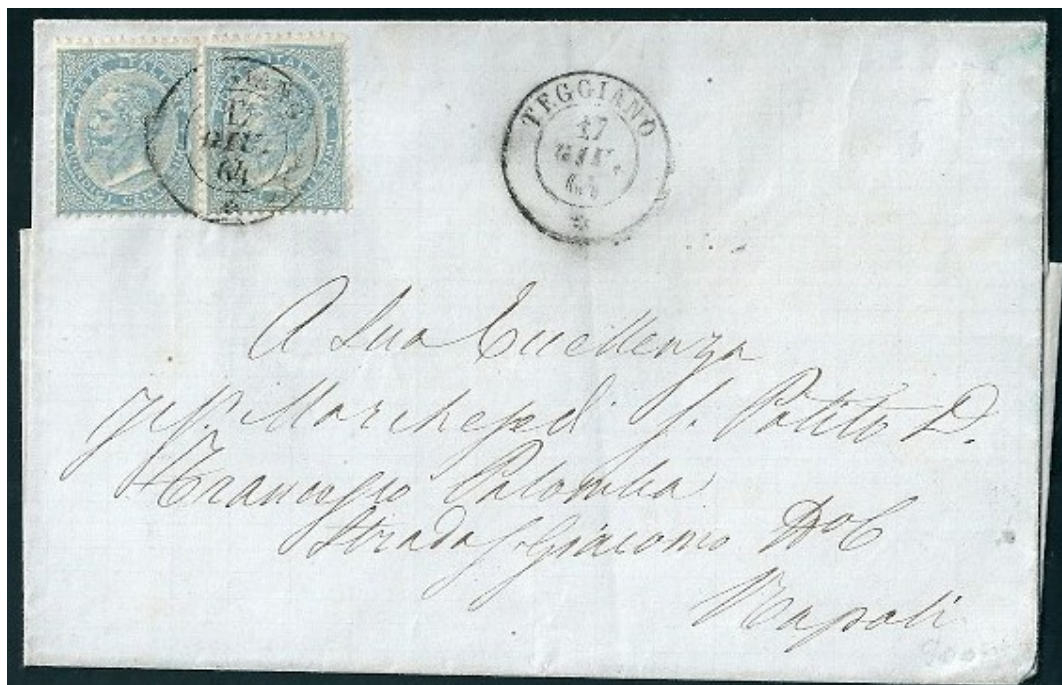 POSTE ITALIANE
C. QUINDICI CENT.
17
GIU.
64
TEGGIANO
17
GIU.
64
A Sua Eccellenza
Marchese di S. Potito D.
Francesco Palomba
Strada S. Giacomo
Napoli